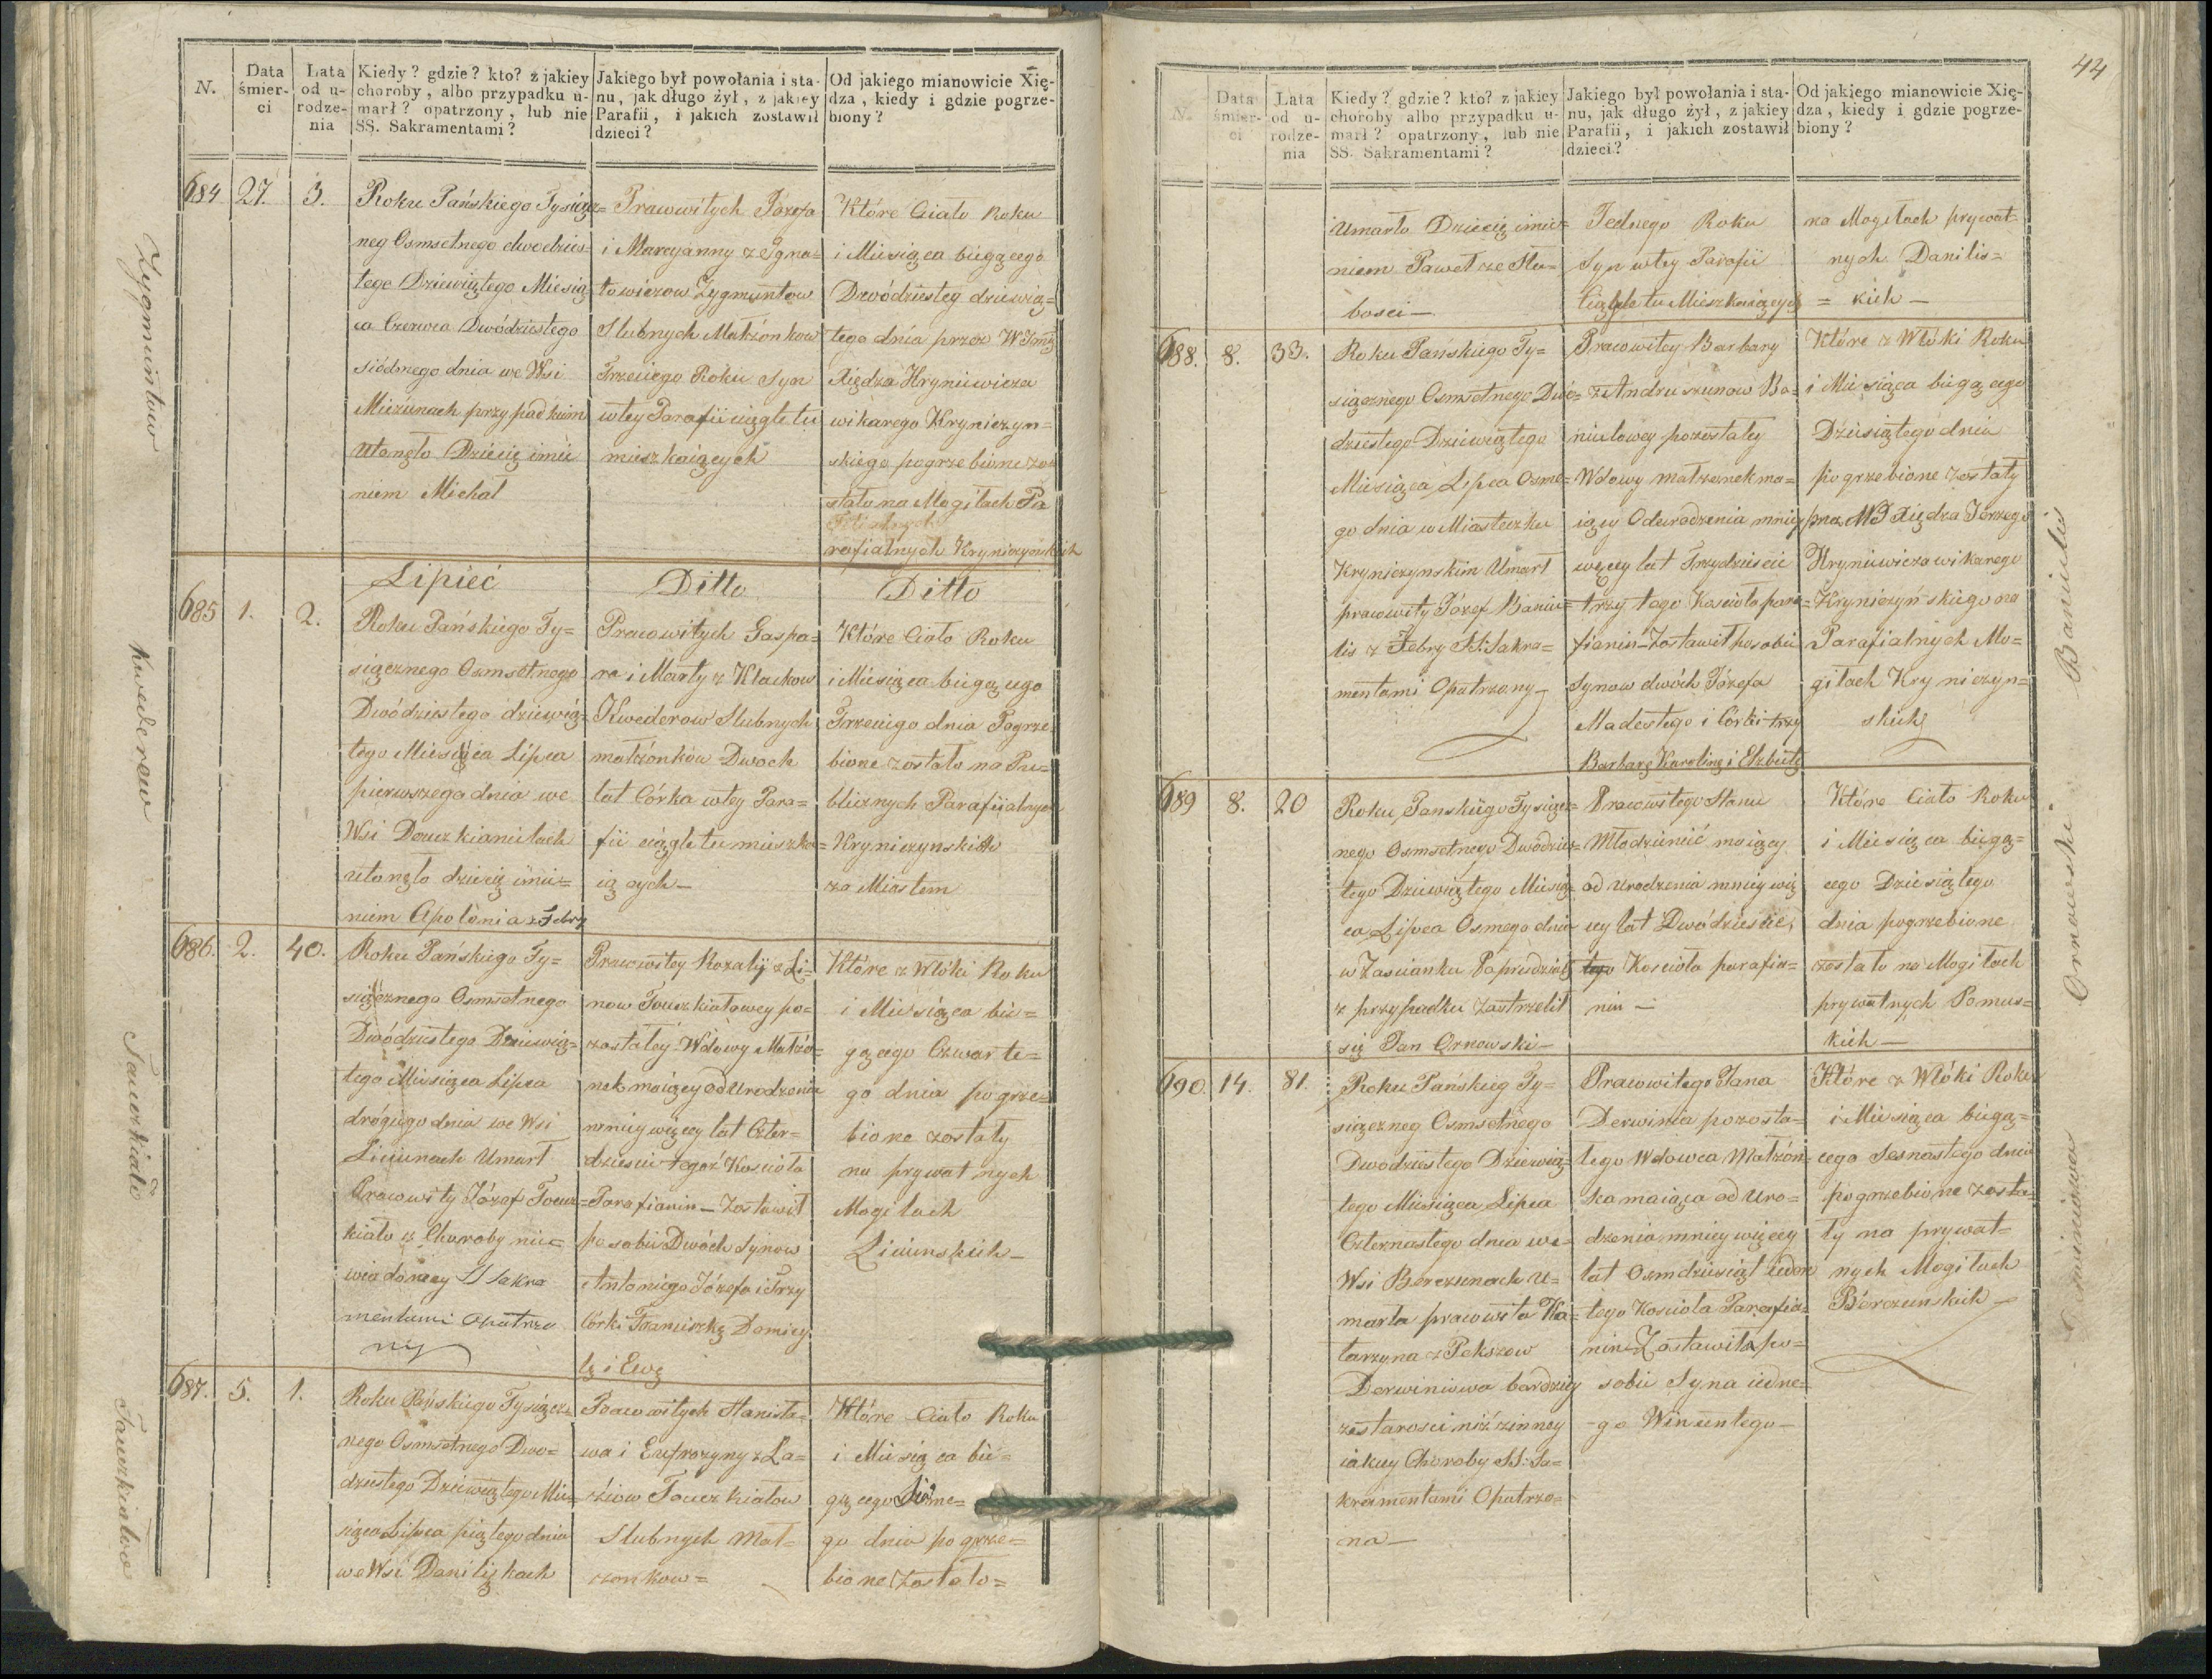 N.
Data śmier- ci
Lata od u- rodze- nia
Kiedy? gdzie? kto? z jakiey choroby, albo przypadku u- marł? opatrzony, lub nie SS. Sakramentami?
Jakiego był powołania i sta- nu, jak długo żył, z jakiey Parafii, i jakich zostawił dzieci?
Od jakiego mianowicie Xię- dza, kiedy i gdzie pogrze- biony?
684
27.
3.
Roku Pańskiego Tysiącz=
neg Osmsetnego dwodzies=
tego Dziewiątego Miesią
ca Czerwca Dwódziestego
siódmego dnia we Wsi
przypadkiem
utonęło Dziecię imie
niem Michał
Pracowitych Józefa
i Maryanny z Igna=
towiczow Zygmuntow
Slubnych Małżonkow
Trzeciego Roku Syn
w tey Parafii ciągle tu
mieszkaiących
Które Ciało Roku
i Miesiąca bieżącego
Dwódziesteg dziewią=
tego dnia przez
Xiędza Hryniewicza
wikarego Kryniczyn=
skiego pogrzebione zo
stało na Mogiłach Pa
rafialnych Kryniczynskich
Zygmuntow
Lipieć
Ditto
Ditto
685
1.
2.
Roku Pańskiego Ty=
siącznego Osmsetnego
Dwódziestego dziewią=
tego Miesiąca Lipca
pierwszego dnia we
Wsi
utonęło dziecię imie=
niem Apolonia z Febry
Pracowitych Gaspa=
ra i Marty z Klackow
Kwederow Slubnych
małżonków Dwoch
lat Córka w tey Para=
fii ciągle tu mieszka=
iących —
Które Ciało Roku
i Miesiąca bieżącego
Trzeciego dnia Pogrze
bione zostało na Pu=
blicznych Parafialnych
Kryniczynskich
za Miastem
Kwederow
686.
2.
40.
Roku Pańskiego Ty=
siącznego Osmsetnego
Dwódziestego Dziewią=
tego Miesiąca Lipca
drógiego dnia we Wsi
Liciunach Umarł
Pracowity Józef Toucz=
kiało z Choroby nie=
wiadomey SS Sakra
mentami Opatrzo
ny
Pracowitey Rozalij z Li=
now Touczkiałowey po=
zostałey Wdowy Małżo=
nek maiący od Urodzenia
mniey więcey lat Czter=
dzieści tegoż Kościoła
Parafianin — Zostawił
po sobie Dwóch Synow
Antoniego Józefa i Trzy
Córki Franciszkę Domicy
lę i Ewę
Które z Włóki Roku
i Miesiąca bie=
żącego Czwarte=
go dnia pogrze=
bione zostały
na prywatnych
Mogiłach
Liciunskich —
687.
5.
1.
Roku Pańskiego Tysiącz=
nego Osmsetnego Dwo=
dziestego Dziewiątego Mie=
siąca Lipca piątego dnia
we Wsi Daniliszkach
Pracowitych Stanisła=
wa i Eufrozyny z Ła=
Touczkiałow
Slubnych Mał=
żonkow =
Które Ciało Roku
i Miesiąca bie=
żącego Siódme=
go dnia pogrze=
bione Zostało =
44
N.
Data śmier- ci
Lata od u- rodze- nia
Kiedy? gdzie? kto? z jakiey choroby albo przypadku u- marł? opatrzony, lub nie SS. Sakramentami?
Jakiego był powołania i sta- nu, jak długo żył, z jakiey Parafii, i jakich zostawił dzieci?
Od jakiego mianowicie Xię- dza, kiedy i gdzie pogrze- biony?
Umarło Dziecię imie=
niem Paweł ze Sła=
bosci —
Jednego Roku
Syn w tey Parafii
Ciągle tu Mieszkaiących
na Mogiłach prywat=
nych Danilis=
= kich —
688.
8.
33.
Roku Pańskiego Ty=
siącznego Osmsetnego Dwó=
dziestego Dziewiątego
Miesiąca Lipca Osme=
go dnia w Miasteczku
Kryniczynskim Umarł
pracowity Józef Baniu=
lis z Febry SS. Sakra=
mentami Opatrzony —
Pracowitey Barbary
z Andruszunow Ba=
niulowey pozostałey
Wdowy małżonek ma=
iący Od urodzenia mniey
więcey lat Trzydzieści
trzy tego Kościoła para=
fianin — Zostawił po sobie
Synow dwóch Józefa
Madestego i Córki trzy
Barbarę Karolinę i Elżbietę
Które z Włóki Roku
i Miesiąca bieżącego
Dziesiątego dnia
pogrzebione zostały
przez Xiędza Jerzego
Hryniewicza wikarego
Kryniczyńskiego na
Parafialnych Mo=
giłach Kryniczyn=
skich
Baniulis
689
8.
20
Roku Pańskiego Tysiącz=
nego Osmsetnego Dwódzies=
tego Dziewiątego Miesią
ca Lipca Osmego dnia
w Zascianku
z przypadku Zastrzelił
się Pan Ornowski —
Pracowitego Stanu
Młodzienić maiący
od Urodzenia mniey wię
cey lat Dwódzieście,
tego Kościoła parafia=
nin —
Które Ciało Roku
i Miesiąca bieżą=
cego Dziesiątego
dnia pogrzebione
zostało na Mogiłach
prywatnych Pomus=
kich —
Ornowski
690.
14.
81.
Roku Pańskieg Ty=
siączneg Osmsetnego
Dwodziestego Dziewią=
tego Miesiąca Lipca
Czternastego dnia we
Wsi Berczunach U=
marła pracowita Ka=
tarzyna z Pekszow
Derwiniowa bardziey
zestarosci niż z inney
iakiey Choroby SS: Sa=
kramentami Opatrzo=
na —
Pracowitego Jana
Derwinia pozosta=
łego Wdowca Małżon=
ka maiąca od Uro=
dzenia mniey więcey
lat Osmdziesiąt ieden
tego Kościoła Parafia=
nin Zostawiła po=
sobie Syna iedne=
- go Wincentego —
Które z Włóki Roku
i Miesiąca bieżą=
cego Sesnastego dnia
pogrzebione zosta=
ły na prywat=
nych Mogiłach
Berczunskich —